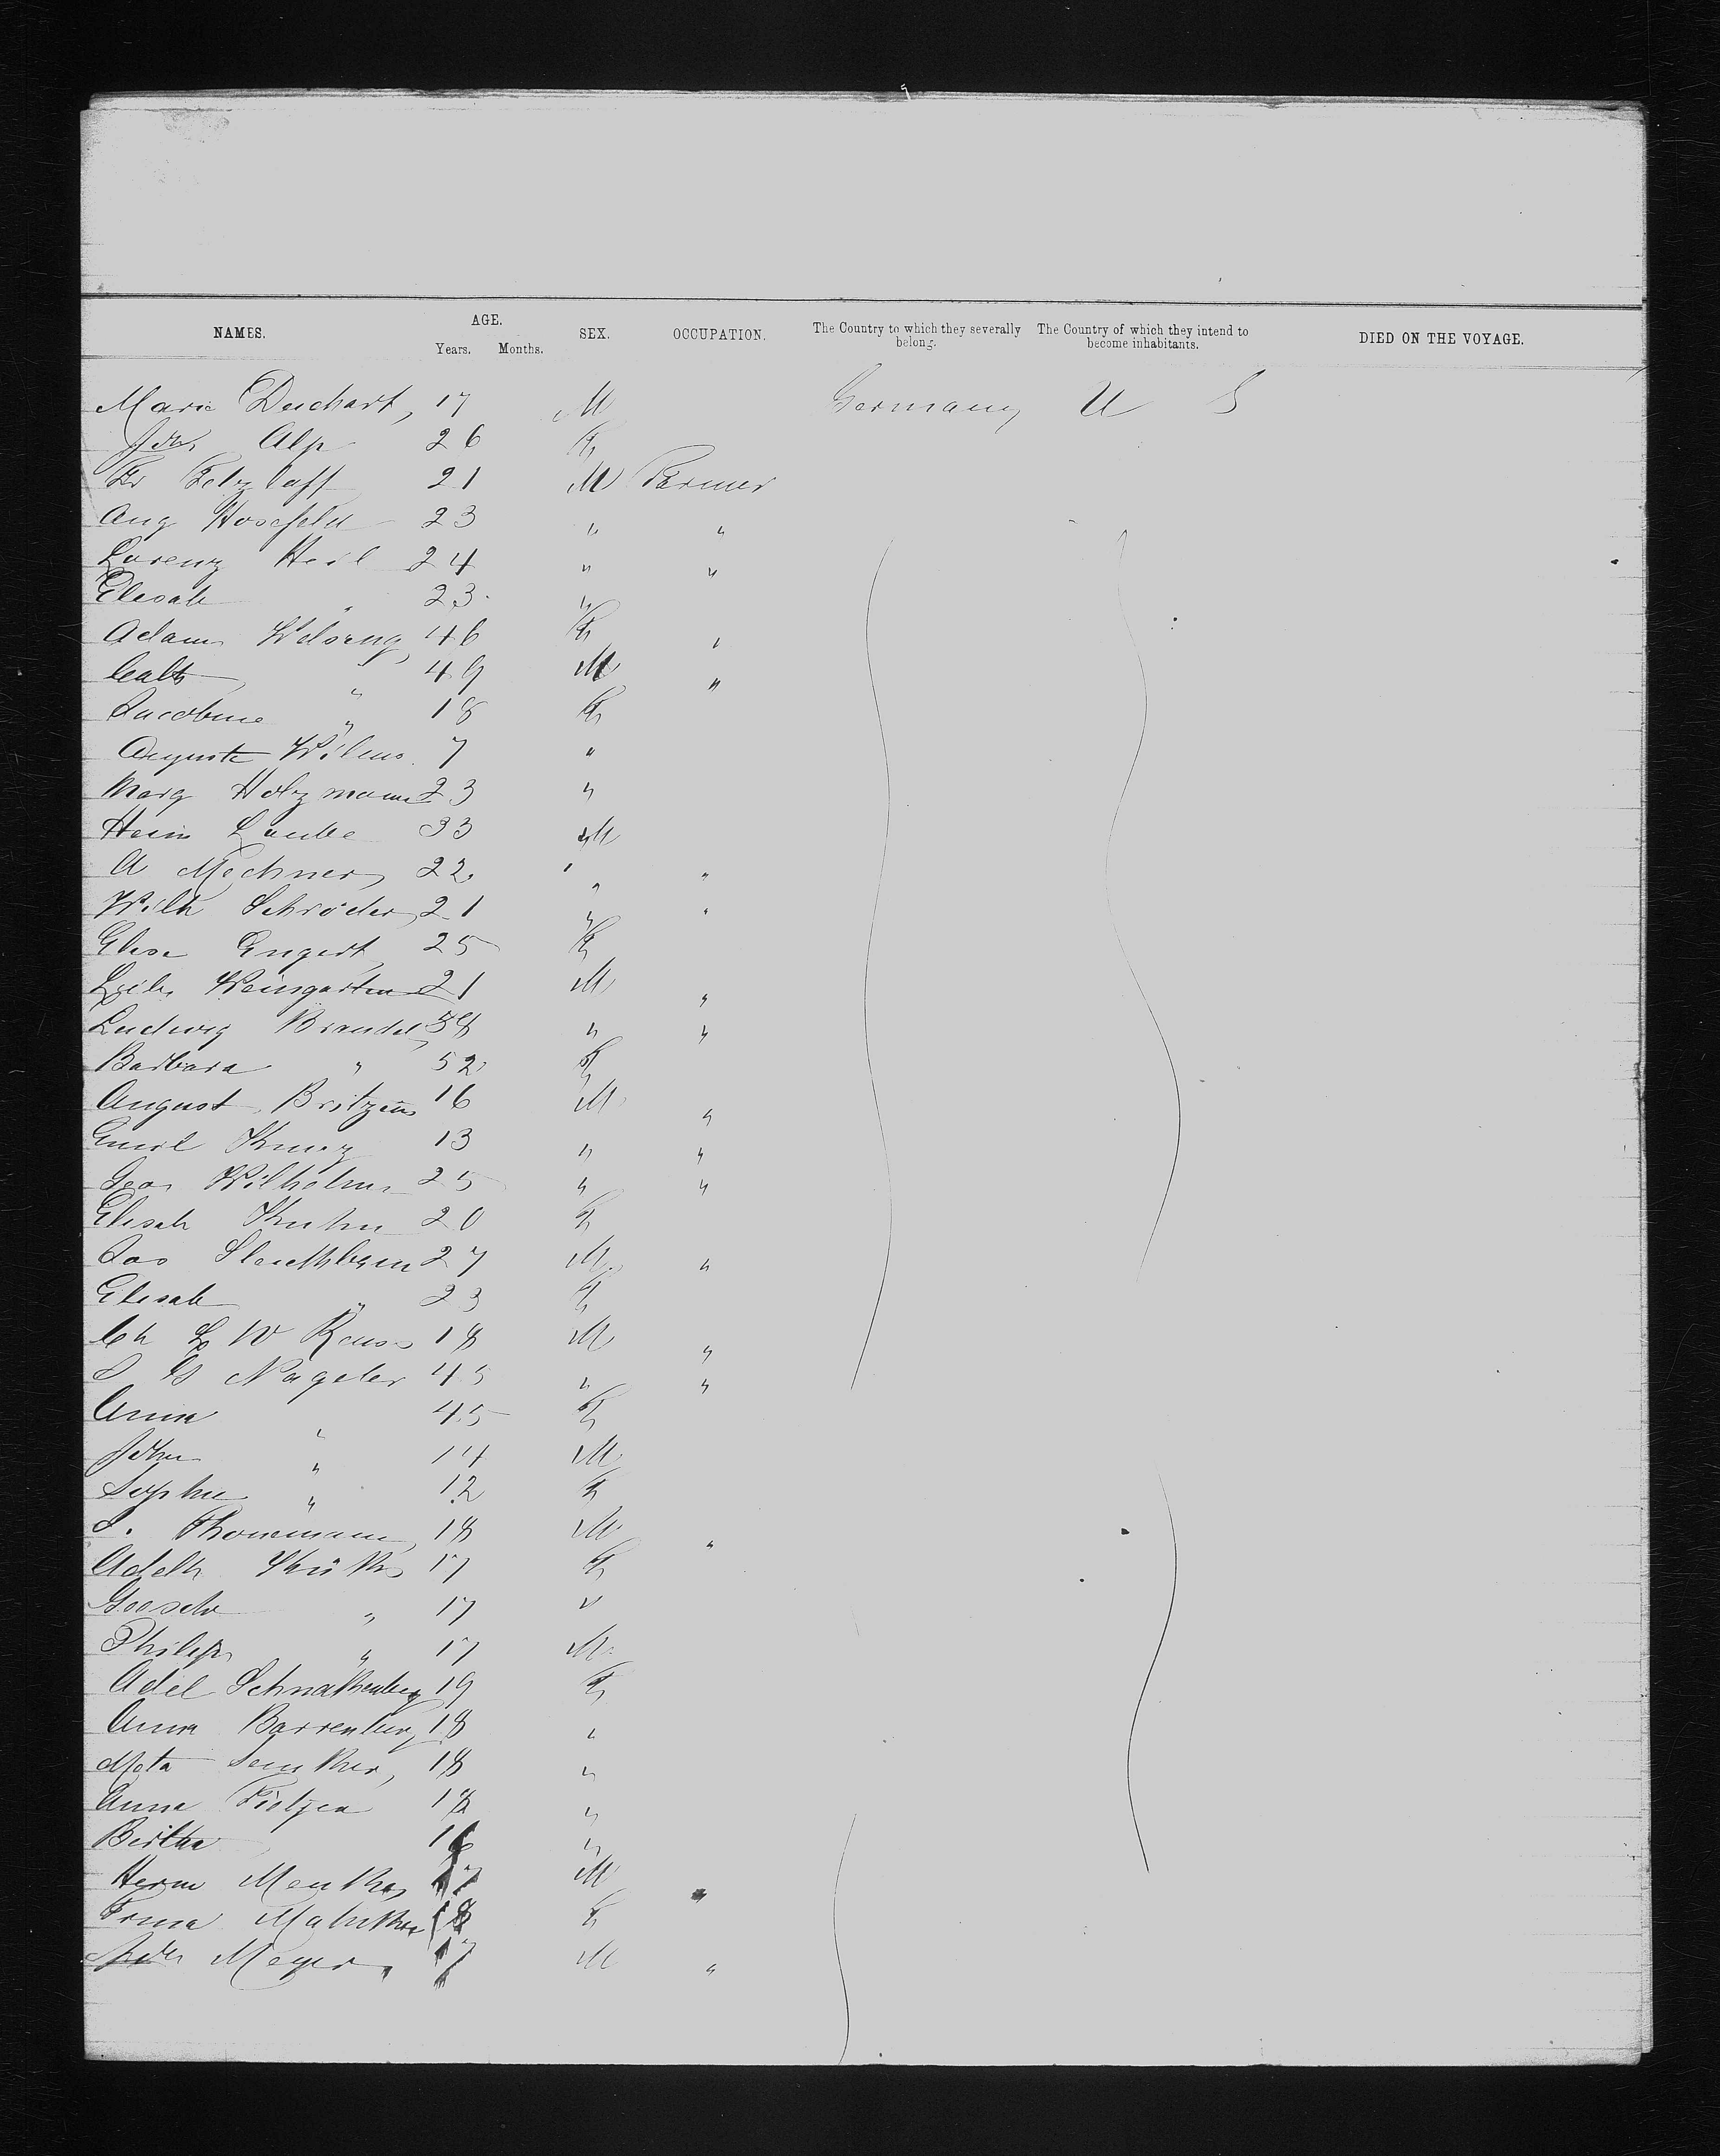 NAMES. AGE. Years. Months. SEX. OCCUPATION. The Country to which they severally belong. The Country of which they intend to become inhabitants. DIED ON THE VOYAGE.
Marie Deichart, 17 M Germany U S
Alp 26 F
Fr Fetzlaff 21 M Farmer
Aug Hosefeld 23 " "
Lorenz Herl 24 " "
Elisab " 23 "
Adam 46 F "
" 49 M "
Jacobine " 18 F
Auguste Wilms 7 "
Marg Holzmann 23 "
Hein Laube 33 M
A Mechner, 22 " "
Wilh Schröder, 21 " "
Elise Engert 25 F
Weingarten 21 M "
Ludwig Brandel 58 " "
Barbara " 52 F
August 16 M "
Emil 13 " "
Geo Wilhelm 25 " "
Elisab Kuhn 20 F
27 M "
Elisab " 23 F
Ch L W 18 M "
Nageler 45 " "
Anna " 45 F
John " 14 M
Sophie " 12 F
18 M "
17 F
" 17 "
Philip " 17 M
Adel Schnakenberg 19 F
Anna Barrenburg 18 "
Meta 18 "
Anna Tietjen 18 "
Bertha 16 "
Herm 17 M "
18 F
Meyer 17 M "